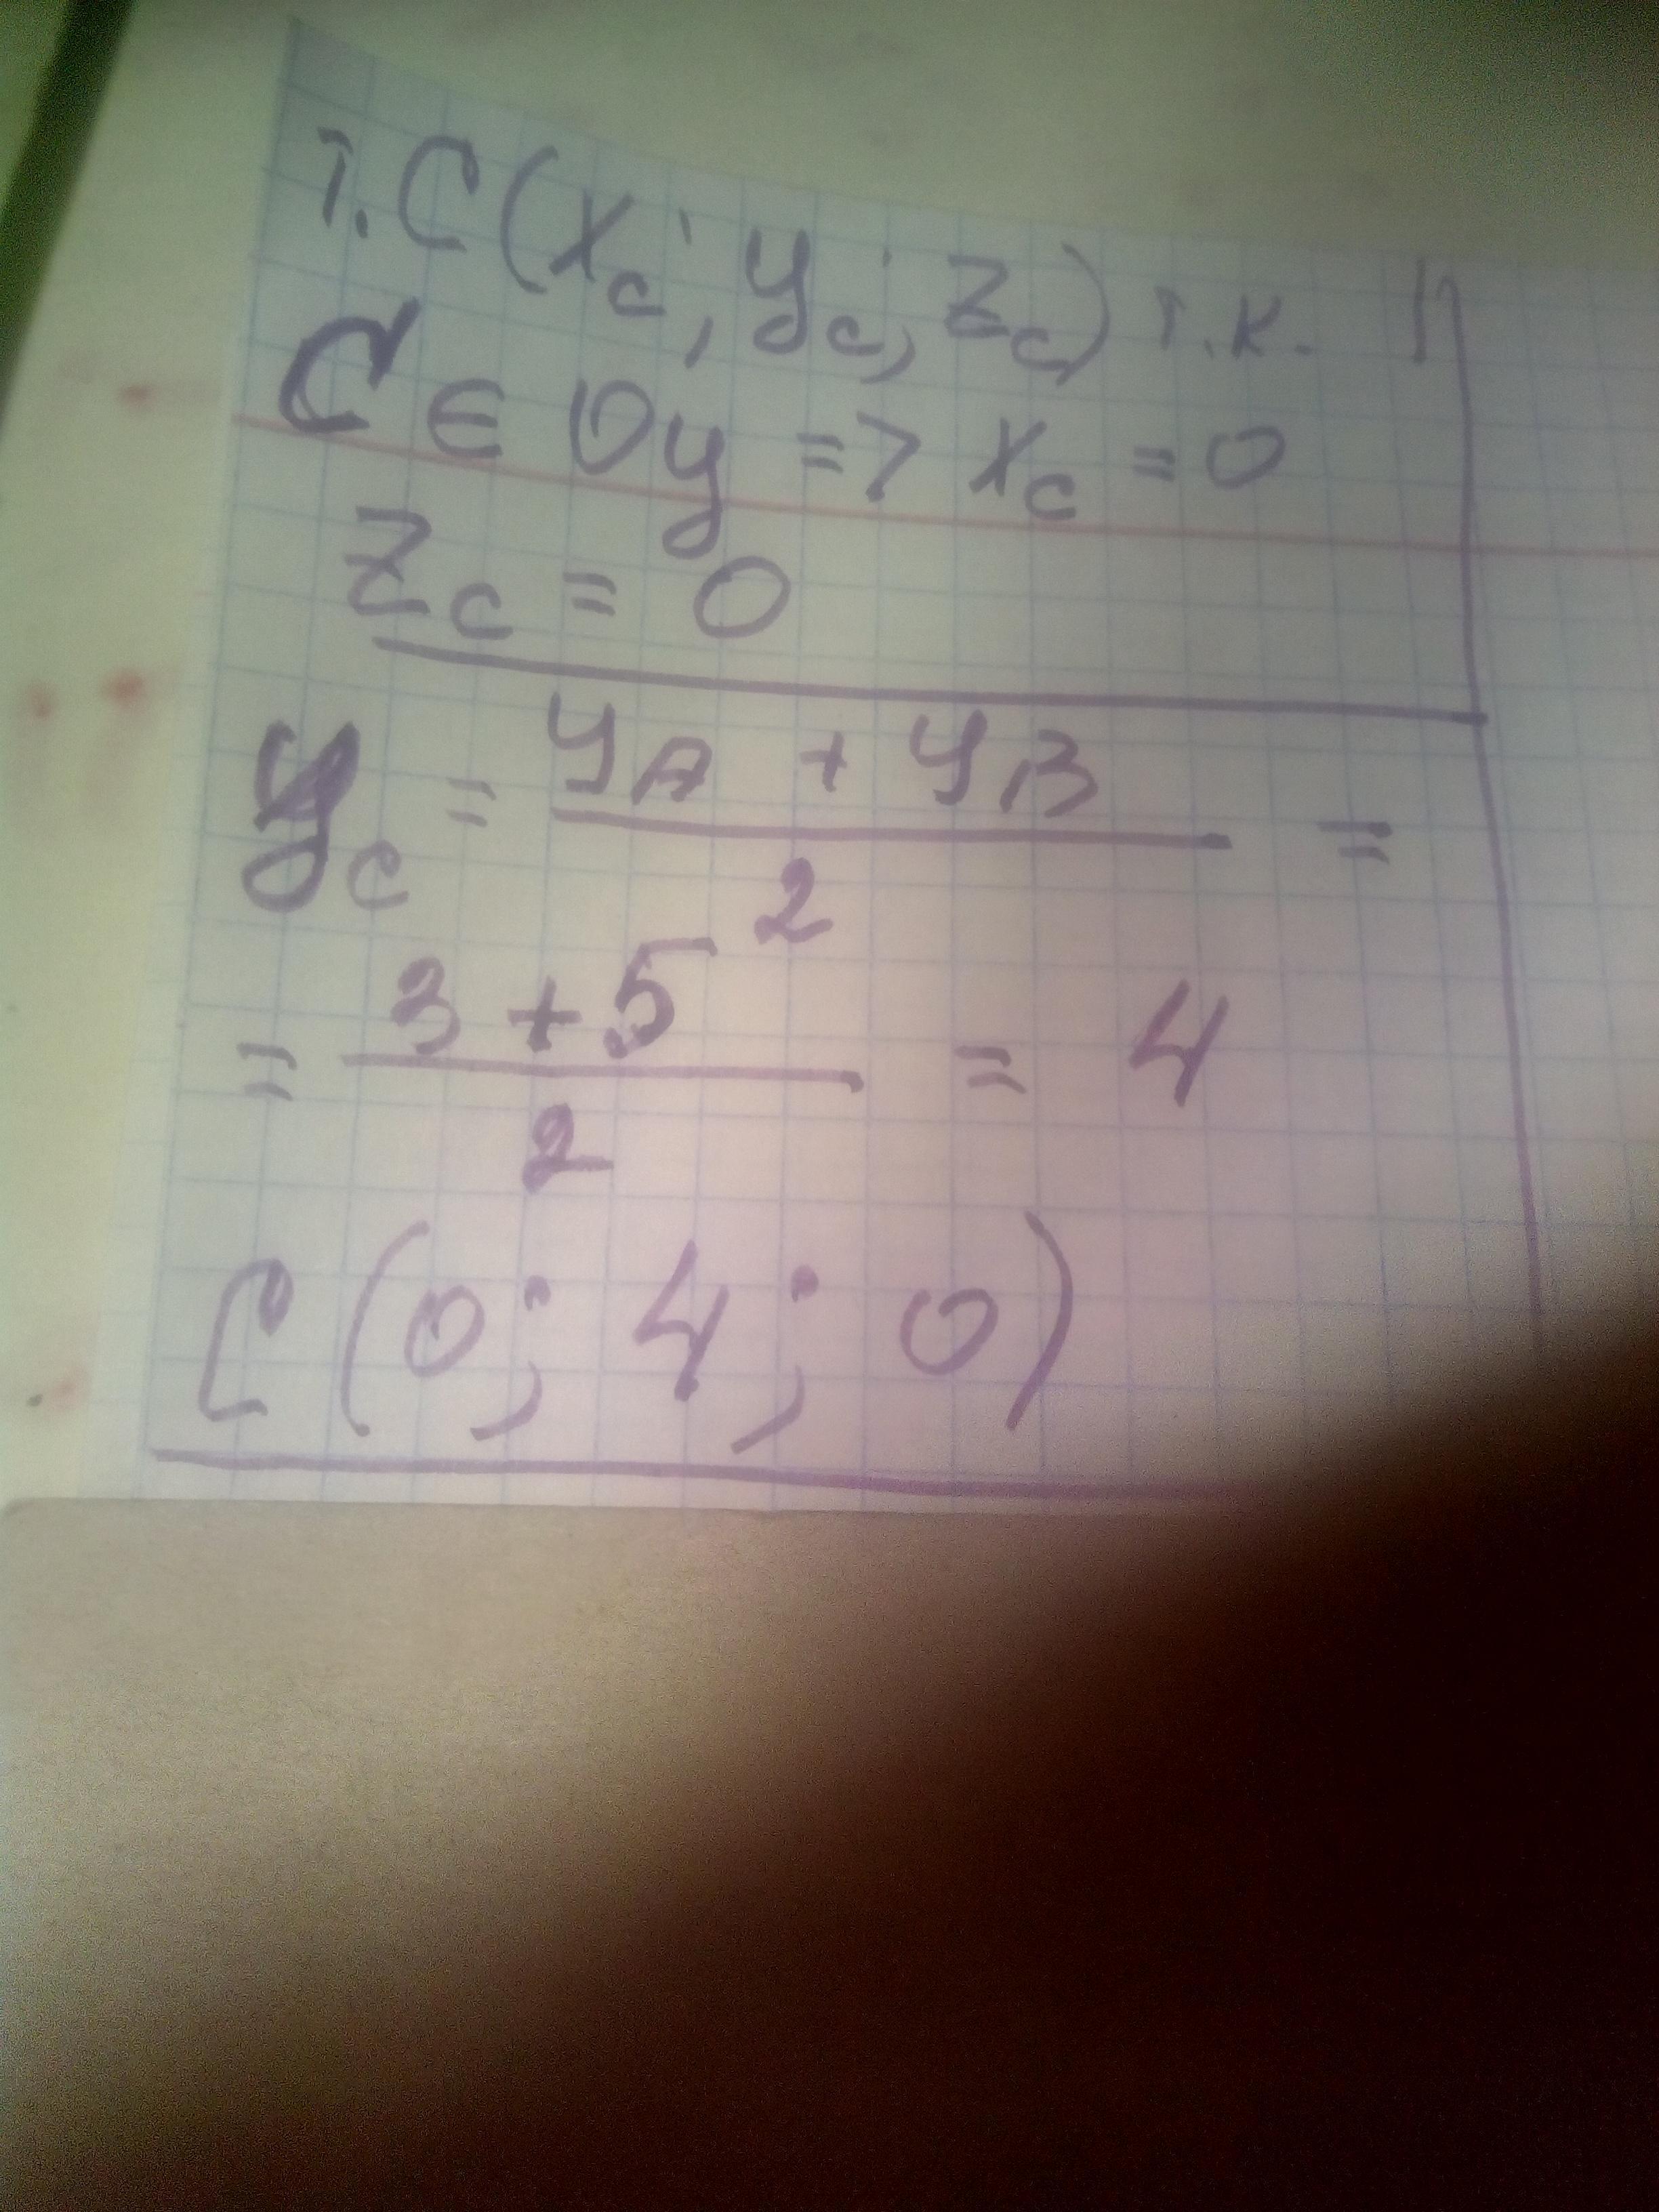 т. C (xc; yc; zc) т.к.
C ∈ Oy => xc = 0
zc = 0
yc = yA + yB / 2 =
= 3 + 5 / 2 = 4
C (0; 4; 0)